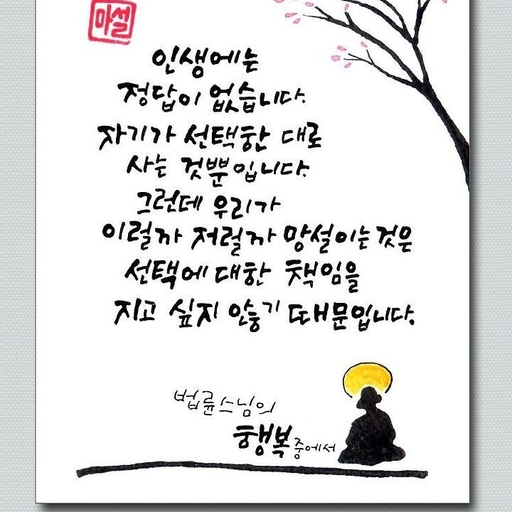 마설
인생에는
정답이 없습니다.
자기가 선택한 대로
사는 것뿐입니다.
그런데 우리가
이럴까 저럴까 망설이는 것은
선택에 대한 책임을
지고 싶지 않기 때문입니다.
법륜스님의
행복 중에서